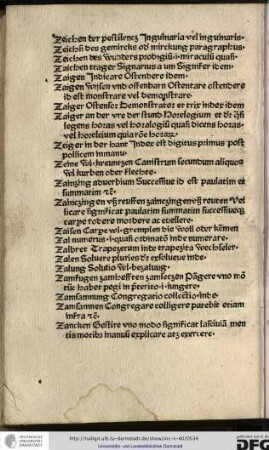 Zeichen der pestilencz Inguinaria vel inguinaris.
Zeichñ des gemircks od mirckung paragraphus.
Zeichen des Wunders prodigiũ·i·miraculũ quasi·
Zaichen trager Signarius a um Signifer idem
Zaigen Indicare Ostendere idem·
Zaigen weisen vnd offenbarn Ostentare ostendere
id est monstrare vel demonstrare·
Zaiger Ostensor Demonstrator et trix index idem
Zaiger an der vre der stund Horologium et dr̃ qsi
legens horas vel horalogiũ quasi dicens horas
vel horoleium quia horas
Zeiger in der hant Index est digitus primus post
pollicem in manu
Zeine Canistrum secundum aliquos
vel kurben oder flechte·
Zainzing aduerbium Successiue id est paulatim et
summatim etc̃·
Zainczing en reuten Vel
carpere significat paulatim summatim successiueqȝ
carpe robere mordere ac euellere·
Zaisen Carpe vel gremplen die woll oder kemen
Zal numerus·i·quasi echinatio inde numerare·
Zalbret Trapezetum inde trapezita wechseler·
Zalen Soluere pluries dr̃ exsoluere inde·
Zalung Solutio vel bezalung·
Zamfugen zamhefften zamseczen Pagere vno mo
tũc habet pegi in pterito·i·iungere·
Zamsamnung Congregatio collectio·inde·
Zamsamnen Congregare colligere patebit etiam
infra etc̃·
Zancken Gestire vno modo significat lasciuiã men
tis motibus manuũ explicare atqȝ exercere·
http://tudigit.ulb.tu-darmstadt.de/show/inc-ii-40/0534
Universitäts- und Landesbibliothek Darmstadt
DFG